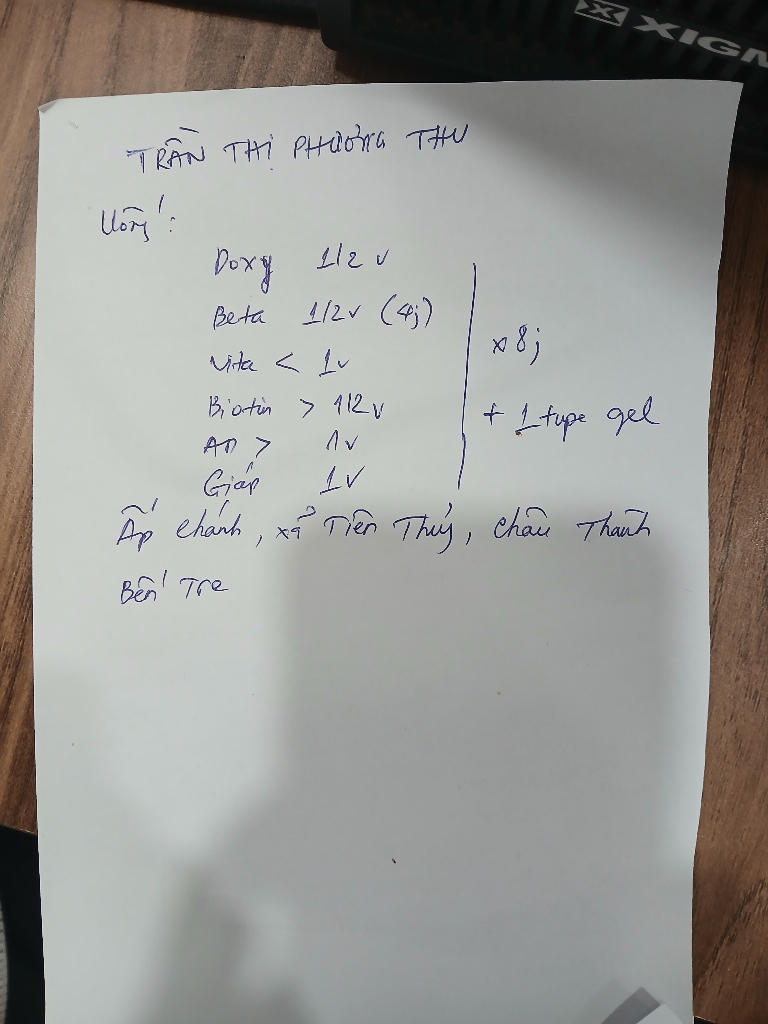 XIGM
TRẦN THỊ PHƯƠNG THU
Uống:
Doxy 1/2 v
Beta 1/2v (4j)
Vita < 1v
Biotin > 1/2v
An > 1v
Giáp 1v
x 8j
+ 1 tupe gel
Ấp Chánh, xã Tiên Thủy, Châu Thành
Bến Tre